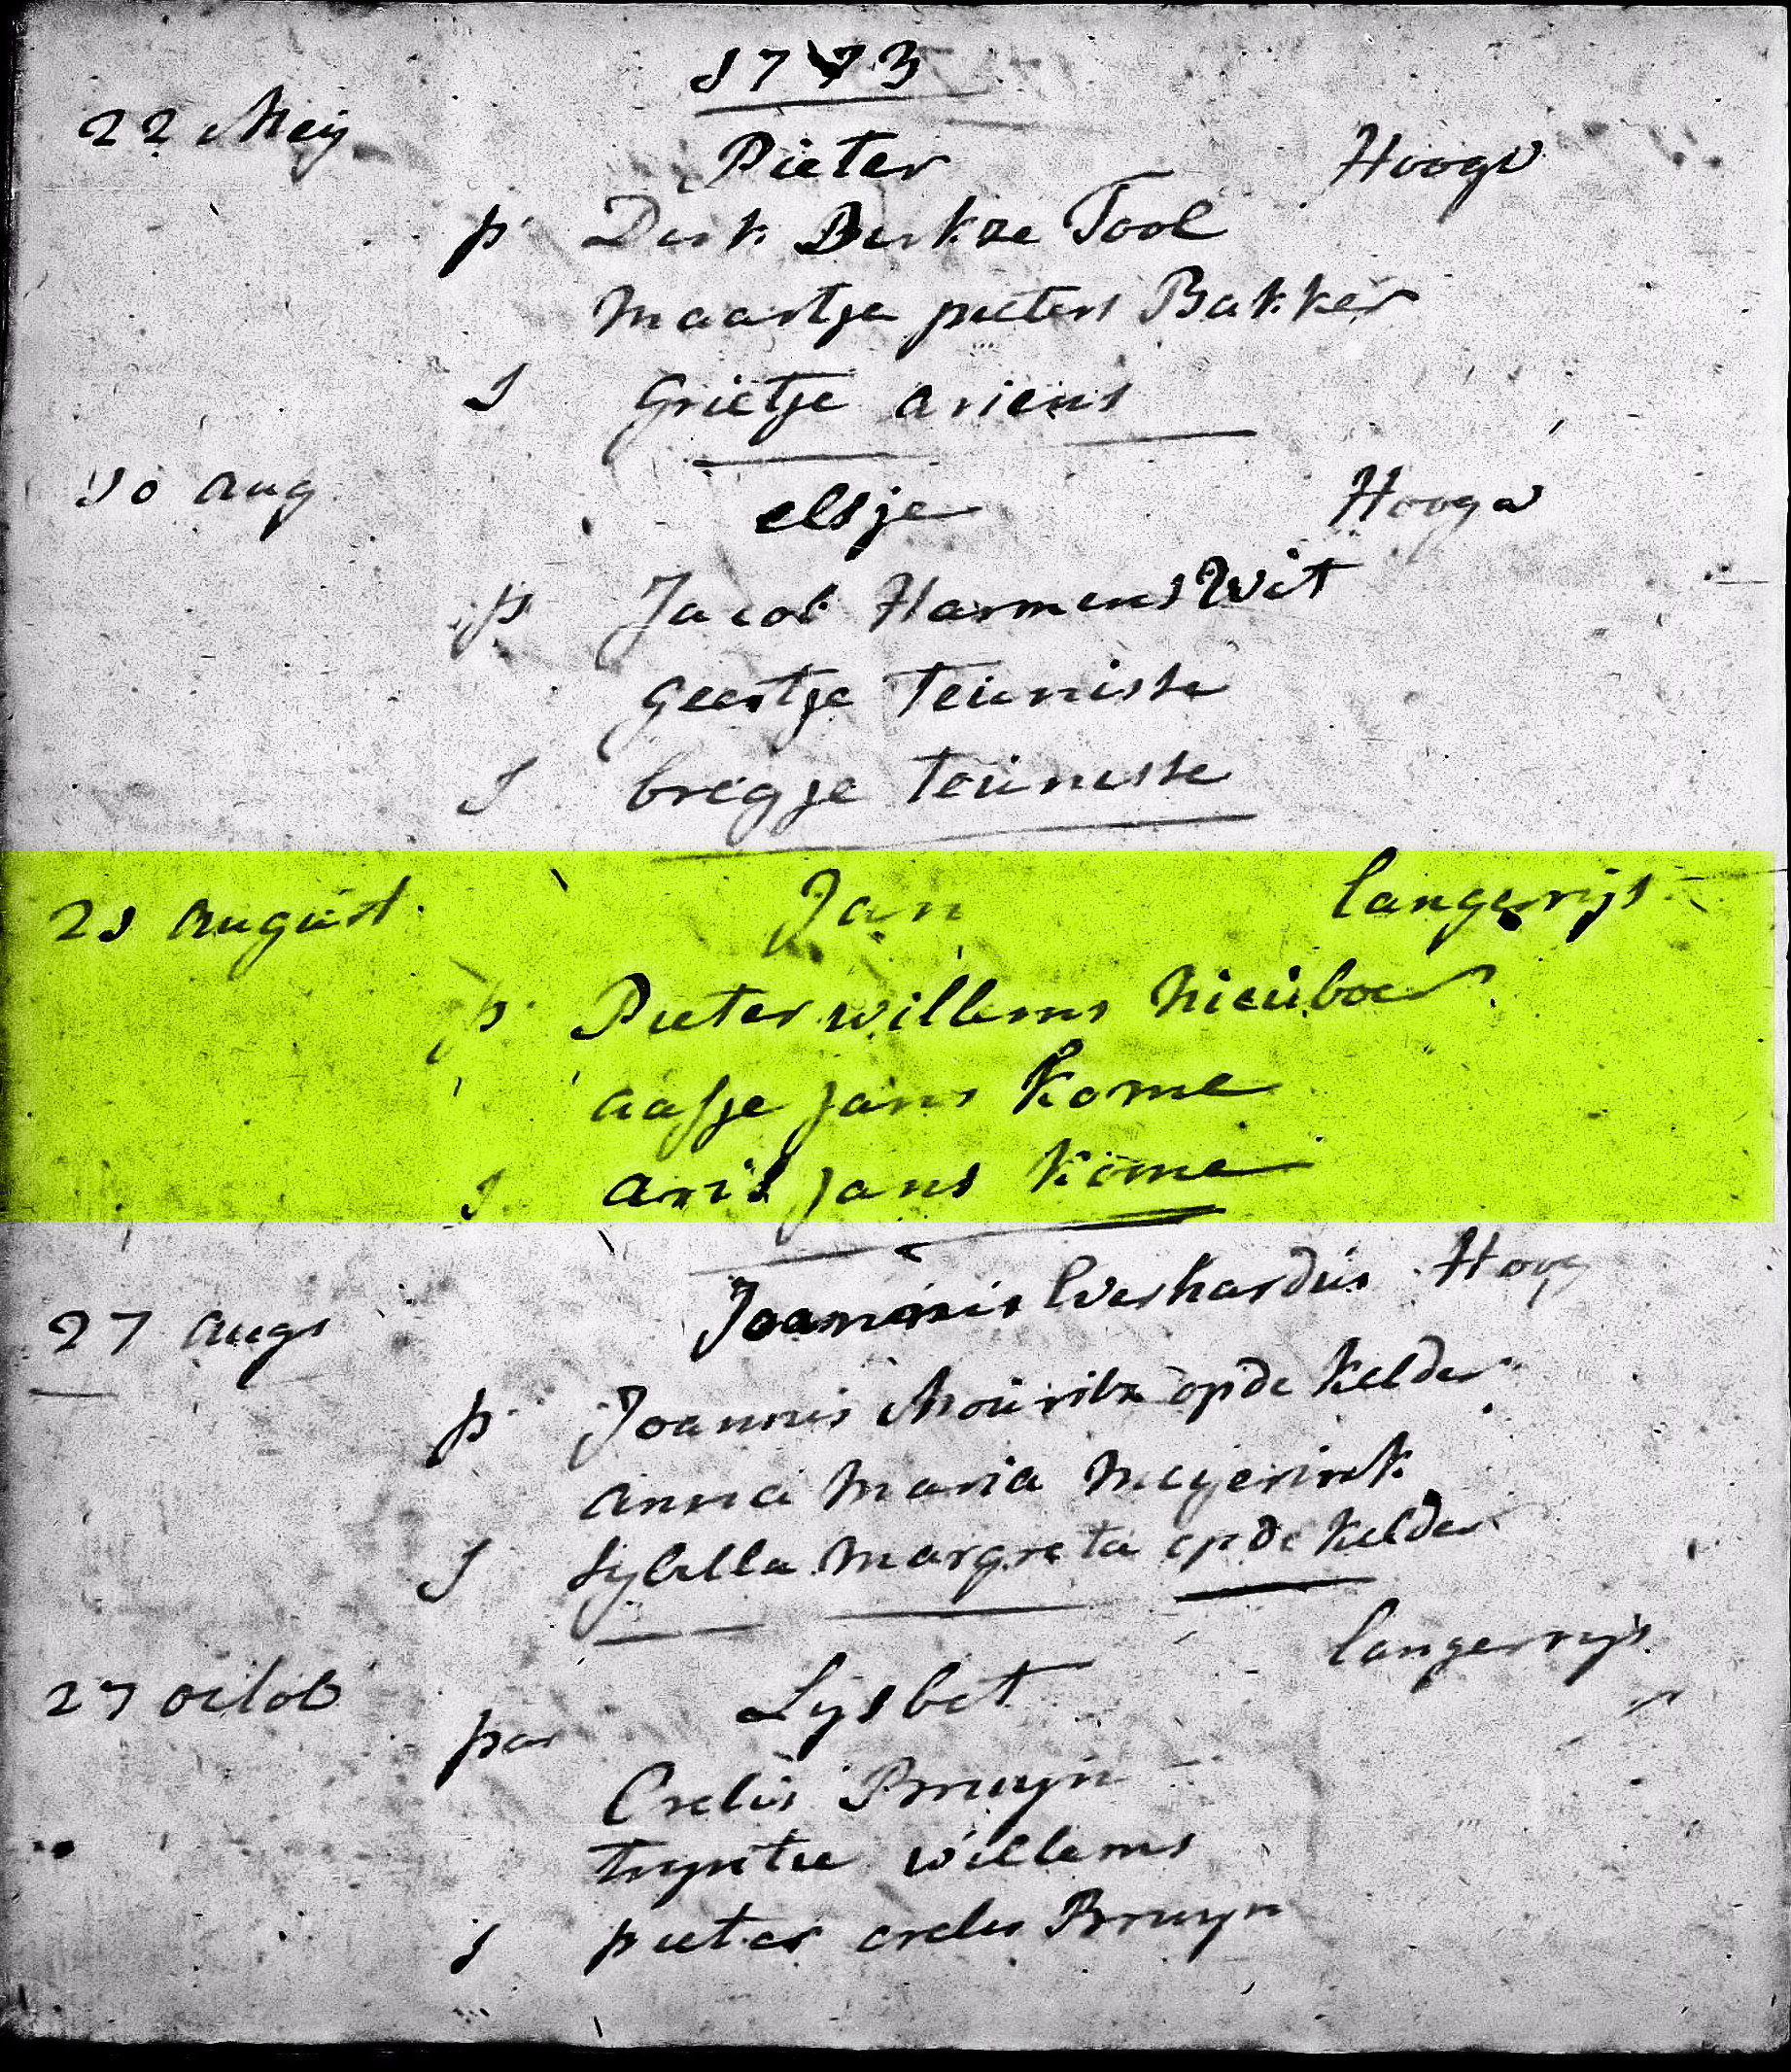 1773
22 Meij Pieter Hoogw
p Dirk Dirkze Tool
Maartje pieters Bakker
S Grietje ariens
10 aug elsje Hoogw
p Jacob Harmens Wit
geertje Teunisse
S bregje teunisse
21 august Jan langerijs
p Pieter willems Nieuboer
aafje jans Kome
S aris jans Kome
27 augs Joannis Everhardus Hoog
p Joannis Mouritz op de Kelder
anna Maria Meijerink
S Sybilla Margreta op de Kelder
27 octob Lijsbet langerijs
par Crelis Bruijn
trijntie willems
S pieter crelis Bruijn